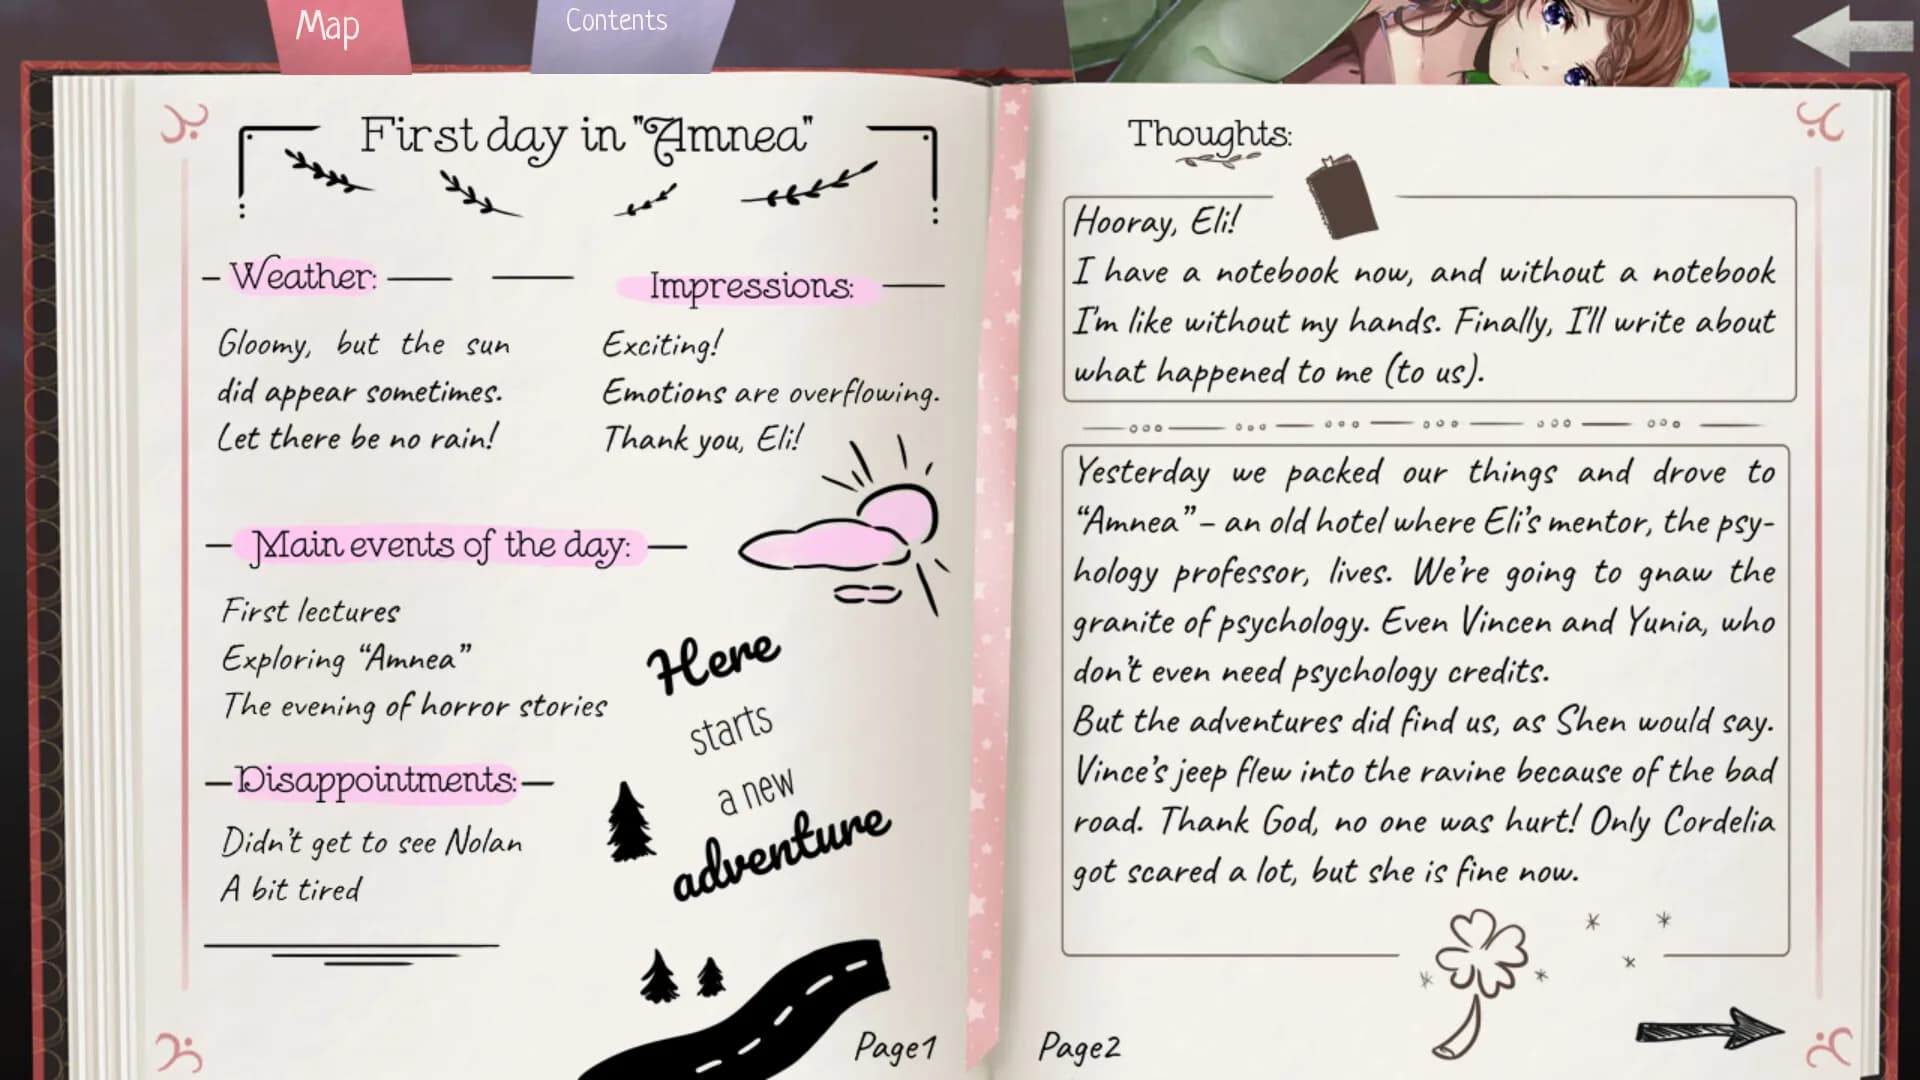 Map
Contents
First day in "Amnea"
Weather:
Gloomy, but the sun
did appear sometimes.
Let there be no rain!
Impressions:
Exciting!
Emotions are overflowing.
Thank you, Eli!
Main events of the day:
First lectures
Exploring “Amnea”
The evening of horror stories
Disappointments:
Didn’t get to see Nolan
A bit tired
Here
starts
a new
adventure
Page1
Thoughts:
Hooray, Eli!
I have a notebook now, and without a notebook
I'm like without my hands. Finally, I'll write about
what happened to me (to us).
Yesterday we packed our things and drove to
“Amnea” – an old hotel where Eli’s mentor, the psy-
hology professor, lives. We’re going to gnaw the
granite of psychology. Even Vincen and Yunia, who
don’t even need psychology credits.
But the adventures did find us, as Shen would say.
Vince’s jeep flew into the ravine because of the bad
road. Thank God, no one was hurt! Only Cordelia
got scared a lot, but she is fine now.
Page2